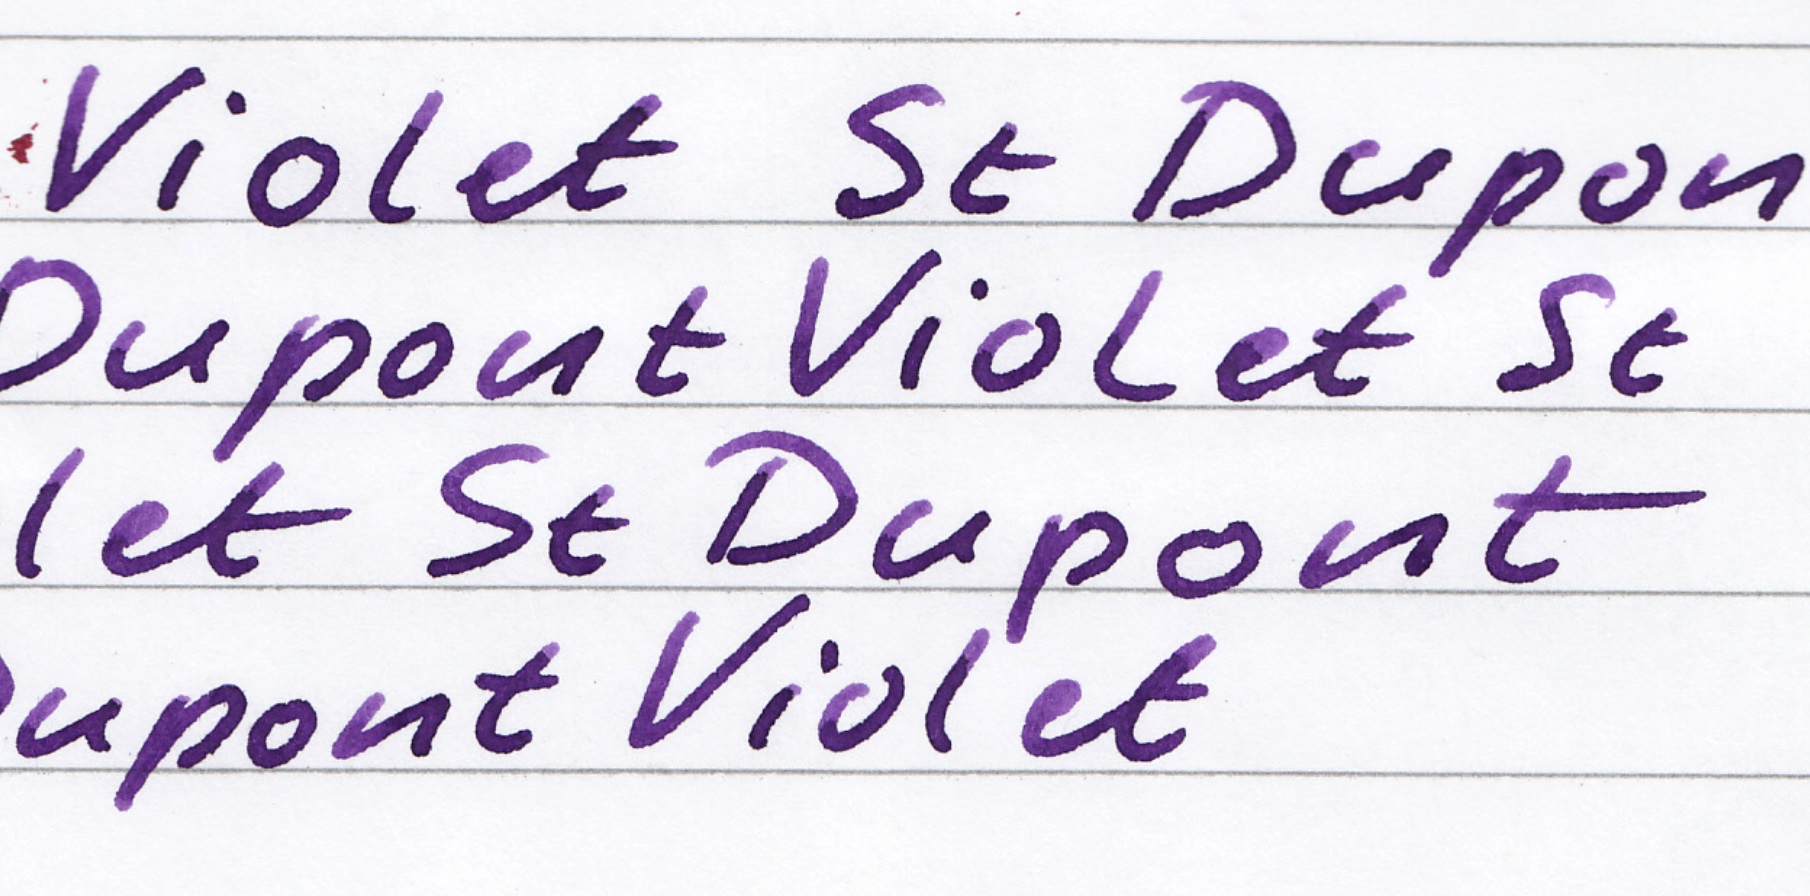 Violet St Dupon
Dupont Violet St
let St Dupont
Dupont Violet